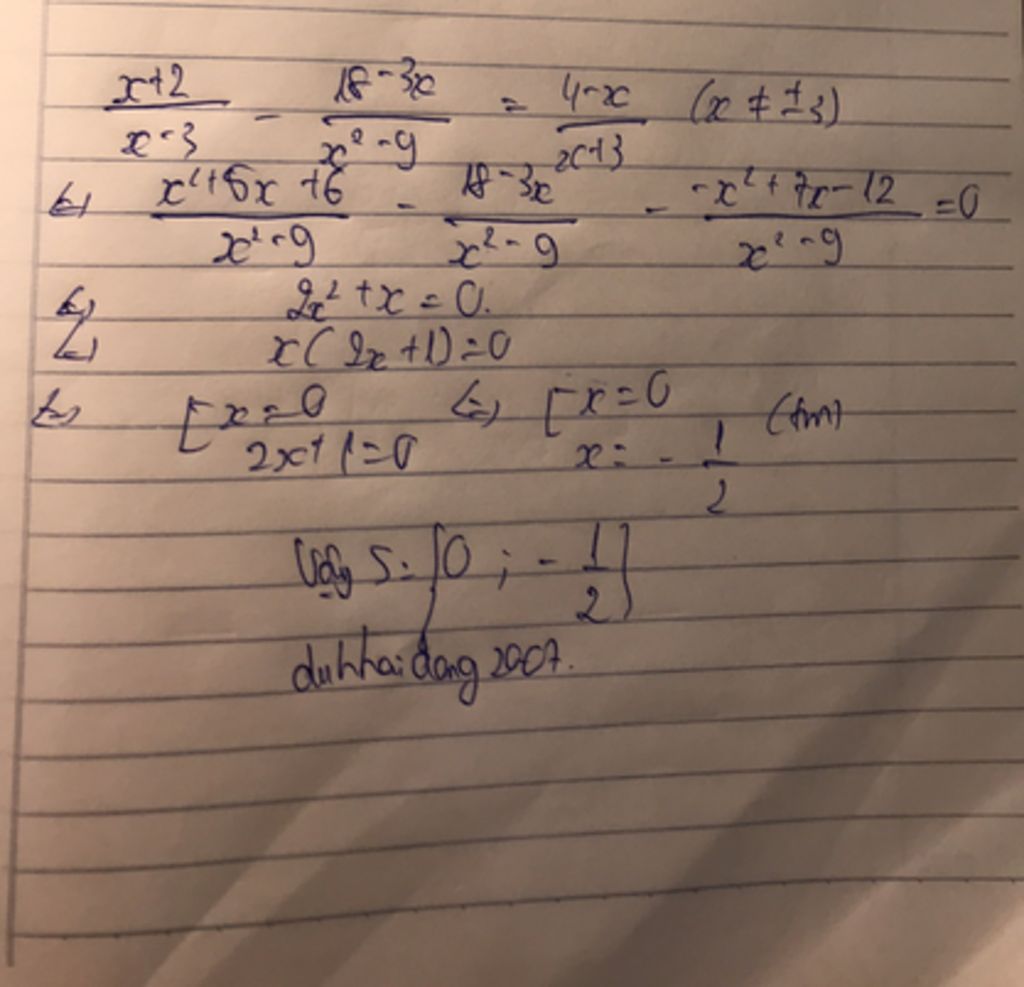 x+2/x-3 - 18-3x/x²-9 = 4-x/x+3 (x ≠ ±3)
<=> x²+5x+6/x²-9 - 18-3x/x²-9 - -x²+7x-12/x²-9 = 0
<=> 2x²+x=0.
<=> x(2x+1)=0
<=> [x=0 2x+1=0 <=> [x=0 x=-1/2 (tm)
Vậy S={0;-1/2}
duhhaidang2007.